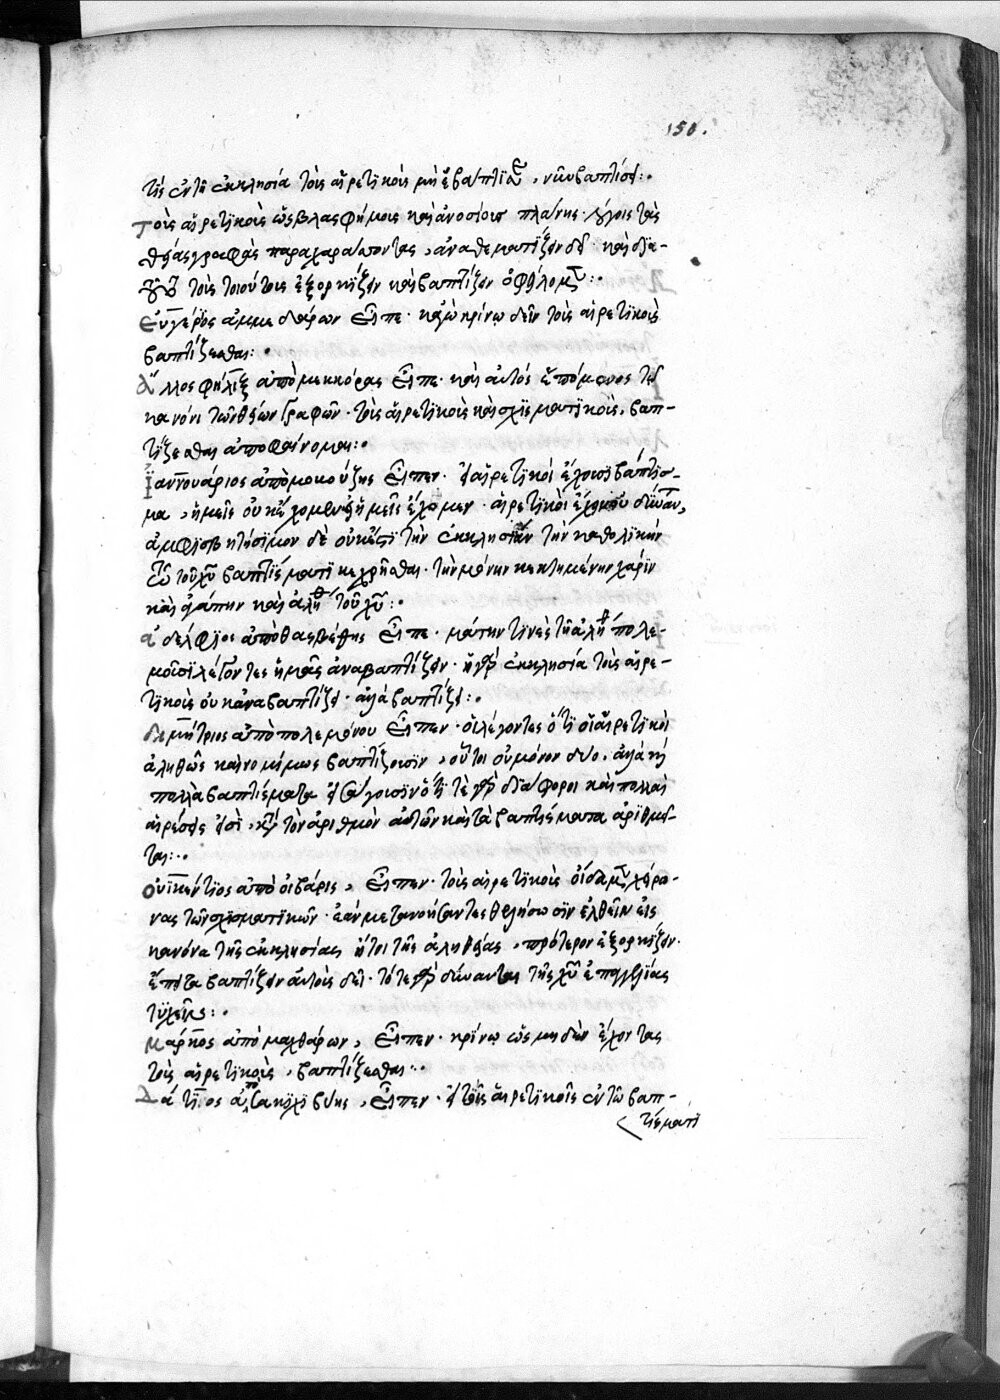 150.
τίς ἐν τῇ ἐκκλησίᾳ τοὺς αἱρετικοὺς μὴ βαπτίσας, νῦν βαπτίσῃ:·
Τοὺς αἱρετικοὺς ὡς βλασφήμους καὶ ἀνοσίους πλάνης λόγοις τὰς
θείας γραφὰς παραχαράττοντας, ἀναθεματίζειν δεῖ· καὶ διὰ
τοῦτο τοὺς τοιούτους ἐξορκίζειν καὶ βαπτίζειν ὀφείλομεν:·
εἶπε· κἀγὼ κρίνω δεῖν τοὺς αἱρετικοὺς
βαπτίζεσθαι:·
Ἄλλος Φῆλιξ ἀπὸ εἶπε· καὶ αὐτός ἑπόμενος τῷ
κανόνι τῶν θείων γραφῶν· τοὺς αἱρετικοὺς καὶ σχισματικοὺς, βαπ-
τίζεσθαι ἀποφαίνομαι:·
Ἰαννουάριος ἀπὸ εἶπεν· εἰ αἱρετικοί ἔχουσι βάπτισ-
μα, ἡμεῖς οὐκ ἔχομεν· εἰ ἡμεῖς ἔχομεν· αἱρετικοὶ ἔχειν οὐ δύνανται,
ἀμφισβητήσιμον δὲ οὐκ ἔστι τὴν ἐκκλησίαν τὴν καθολικὴν
τῷ τοῦ χῦ βαπτίσματι κεχρῆσθαι· τὴν μόνην κεκτημένην χάριν
καὶ ἀγάπην καὶ ἀλήθ τοῦ χῦ:·
ἀδέλφιος ἀπὸ θασβέθης εἶπε· μάτην τινὲς τῇ ἀληθ πολε-
μοῦσι λέγοντες ἡμᾶς ἀναβαπτίζειν· ἡ γὰρ ἐκκλησία τοὺς αἱρε-
τικοὺς οὐκ ἀναβαπτίζει· ἀλλὰ βαπτίζει:·
Δημήτριος ἀπὸ πολεμόνου εἶπεν· οἱ λέγοντες ὅτι οἱ αἱρετικοὶ
ἀληθῶς καὶ νομίμως βαπτίζουσιν, οὗτοι οὐ μόνον δύο, ἀλλὰ καὶ
πολλὰ βαπτίσματα λέγουσιν ὅτι τε γὰρ διάφοροι καὶ πολλαὶ
αἱρέσεις εἰσὶ, κατὰ τὸν ἀριθμὸν αὐτῶν καὶ τὰ βαπτίσματα ἀριθμεῖ-
ται:·
Οὐικέντιος ἀπὸ εἶπεν· τοὺς αἱρετικοὺς οἴδαμεν χείρο-
νας τῶν σχισματικῶν· ἐὰν μετανοήσαντες θελήσωσιν ἐλθεῖν εἰς
κανόνα τῆς ἐκκλησίας ἤτοι τῆς ἀληθείας, πρότερον ἐξορκίζειν·
ἔπειτα βαπτίζειν αὐτοὺς δεῖ· τότε γὰρ δύνανται τῆς χῦ ἐπαγγελίας
τυχεῖν:·
Μάρκος ἀπὸ μακθάρων, εἶπεν· κρίνω ὡς μηδὲν ἔχοντας
τοὺς αἱρετικοὺς, βαπτίζεσθαι:·
εἶπεν· εἰ τοῖς αἱρετικοῖς ἐν τῷ βαπ-
τίσματι